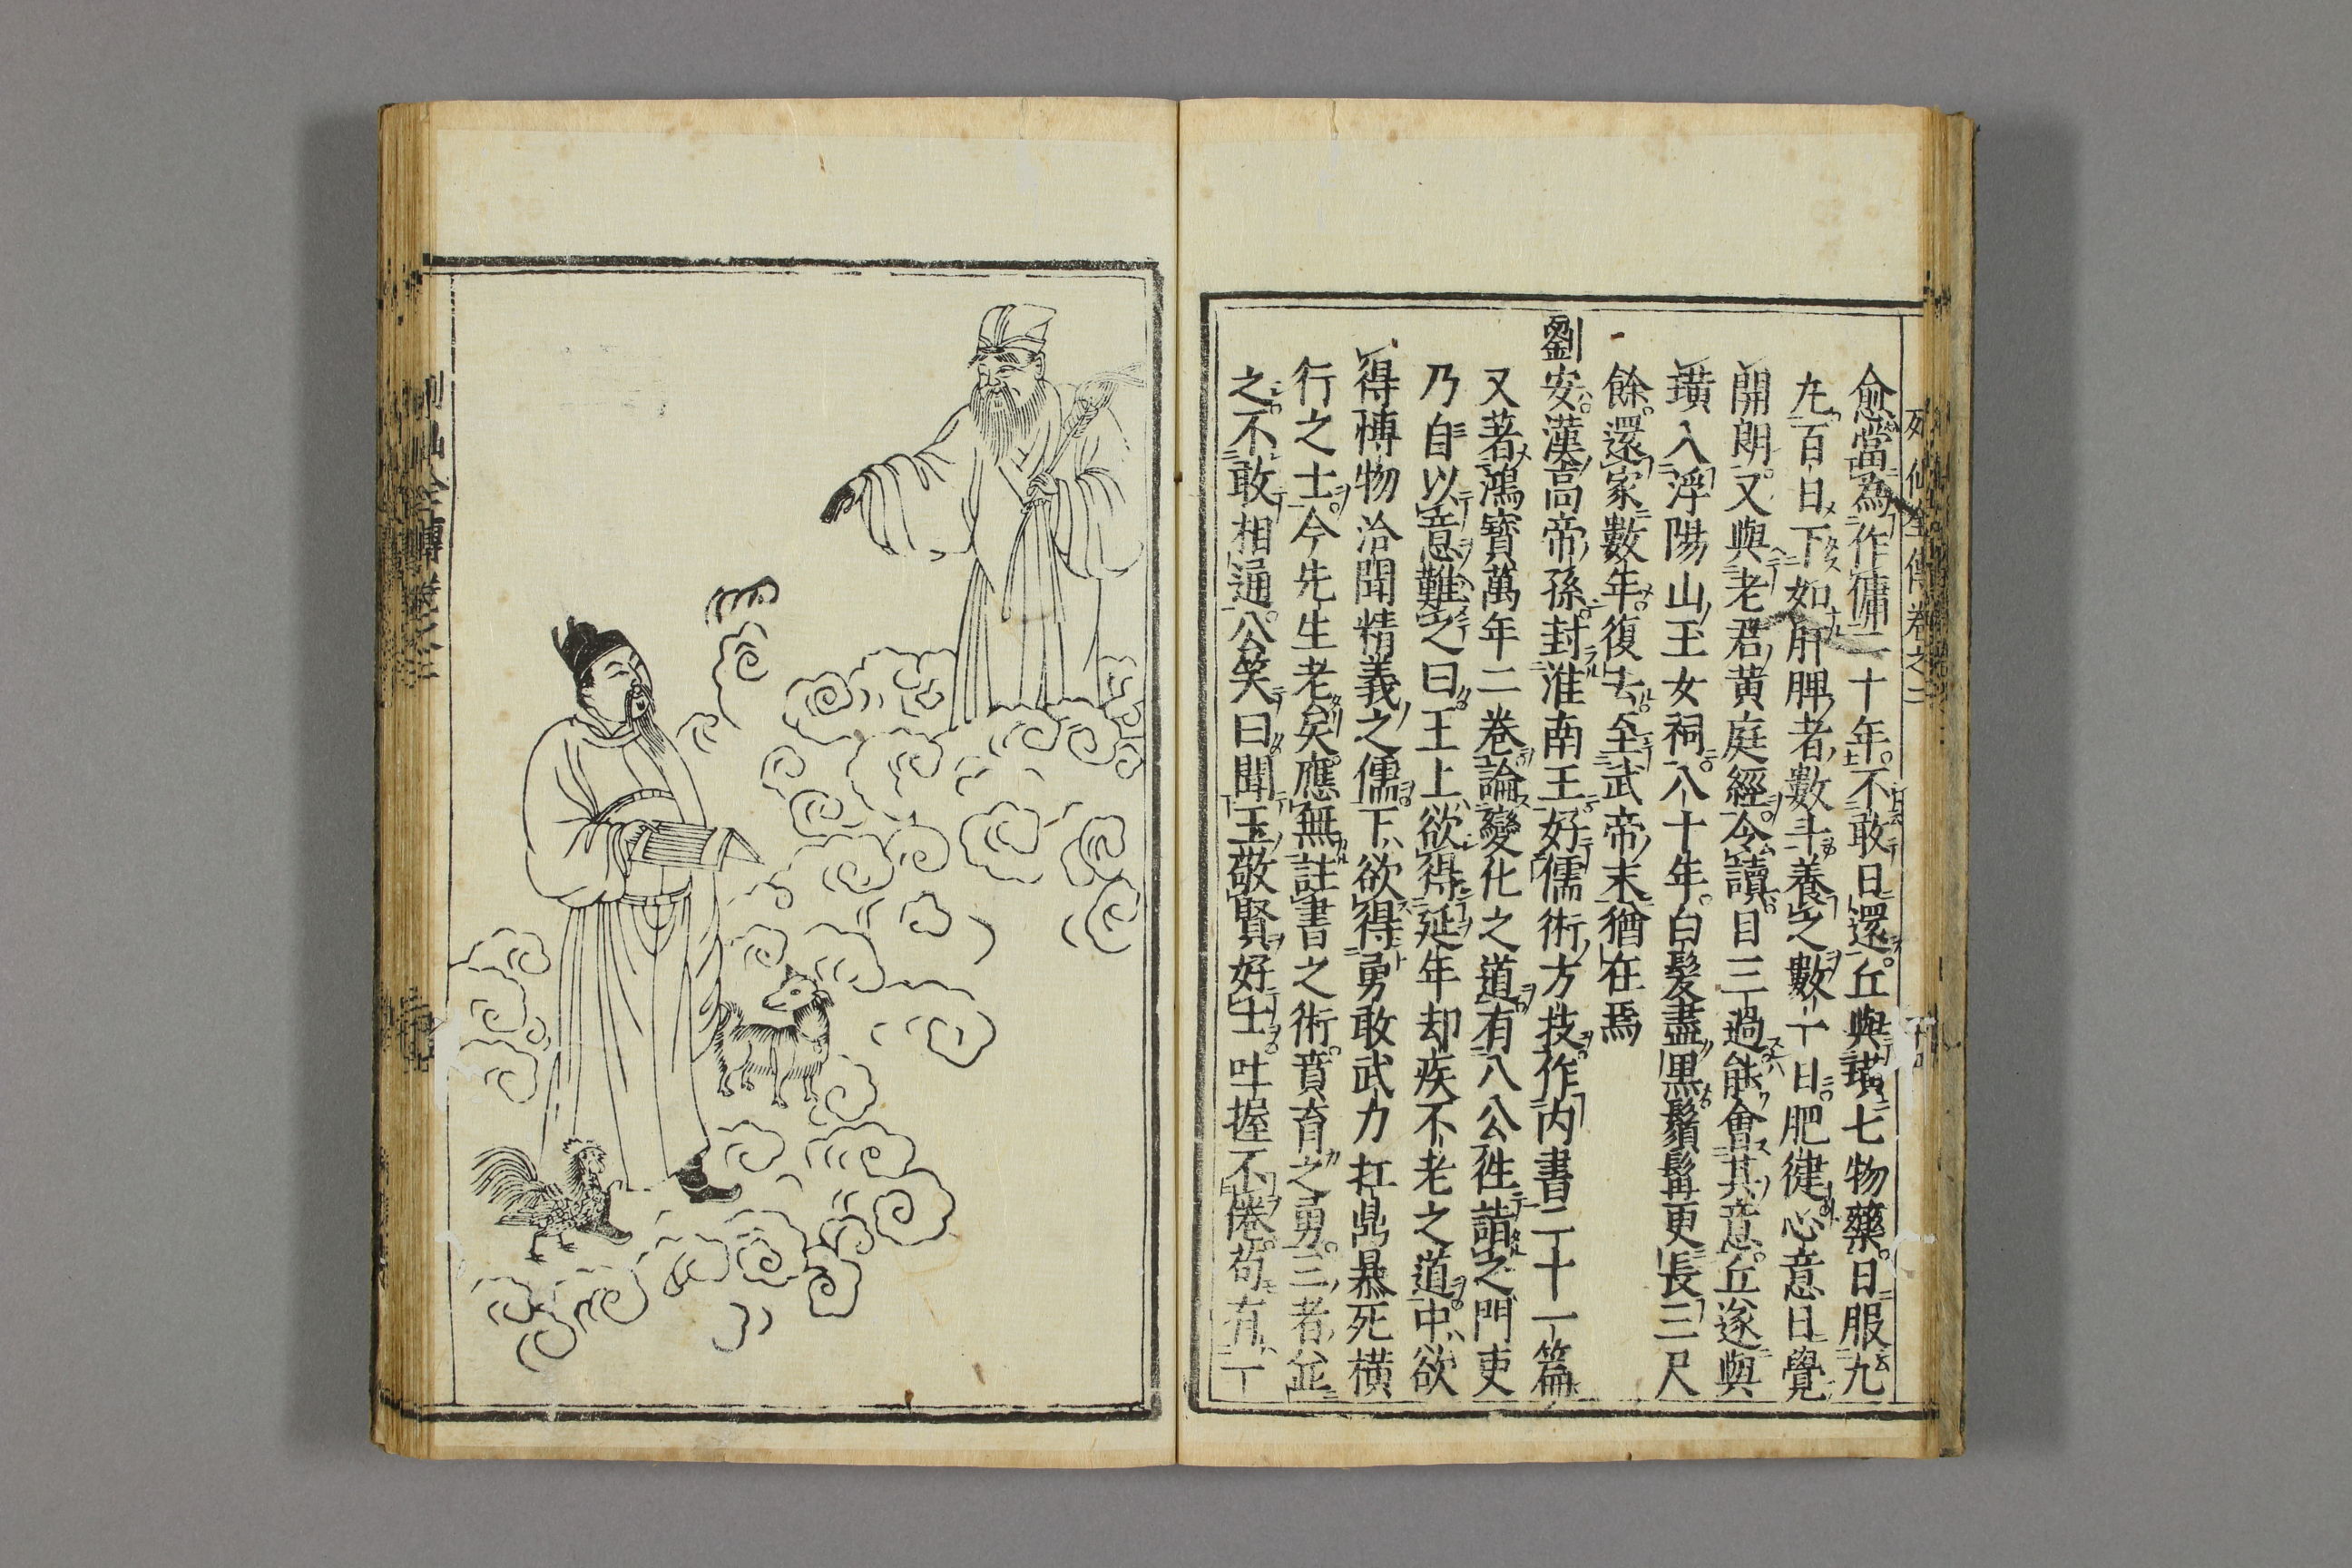 列仙全傳卷之二
愈當為作傭二十年不敢日還丘與璜七物藥日服九
九百日下如肝脾者數斗養之數十日肥健心意日覺
開朗又與老君黃庭經令讀日三過能會其意丘遂與
璜入浮陽山玉女祠八十年白髮盡黑鬚髯更長三尺
餘還家數年復去至武帝末猶在焉
劉安漢高帝孫封淮南王好儒術方技作内書二十一篇
又著鴻寶萬年二卷論變化之道有八公往詣之門吏
乃自以意難之曰王上欲得延年却疾不老之道中欲
得博物洽聞精義之儒下欲得勇敢武力扛鼎暴死橫
行之士今先生老矣應無註書之術賁育之勇三者並
之不敢相通公笑曰聞王敬賢好士吐握不倦苟有一
列仙全傳卷之二